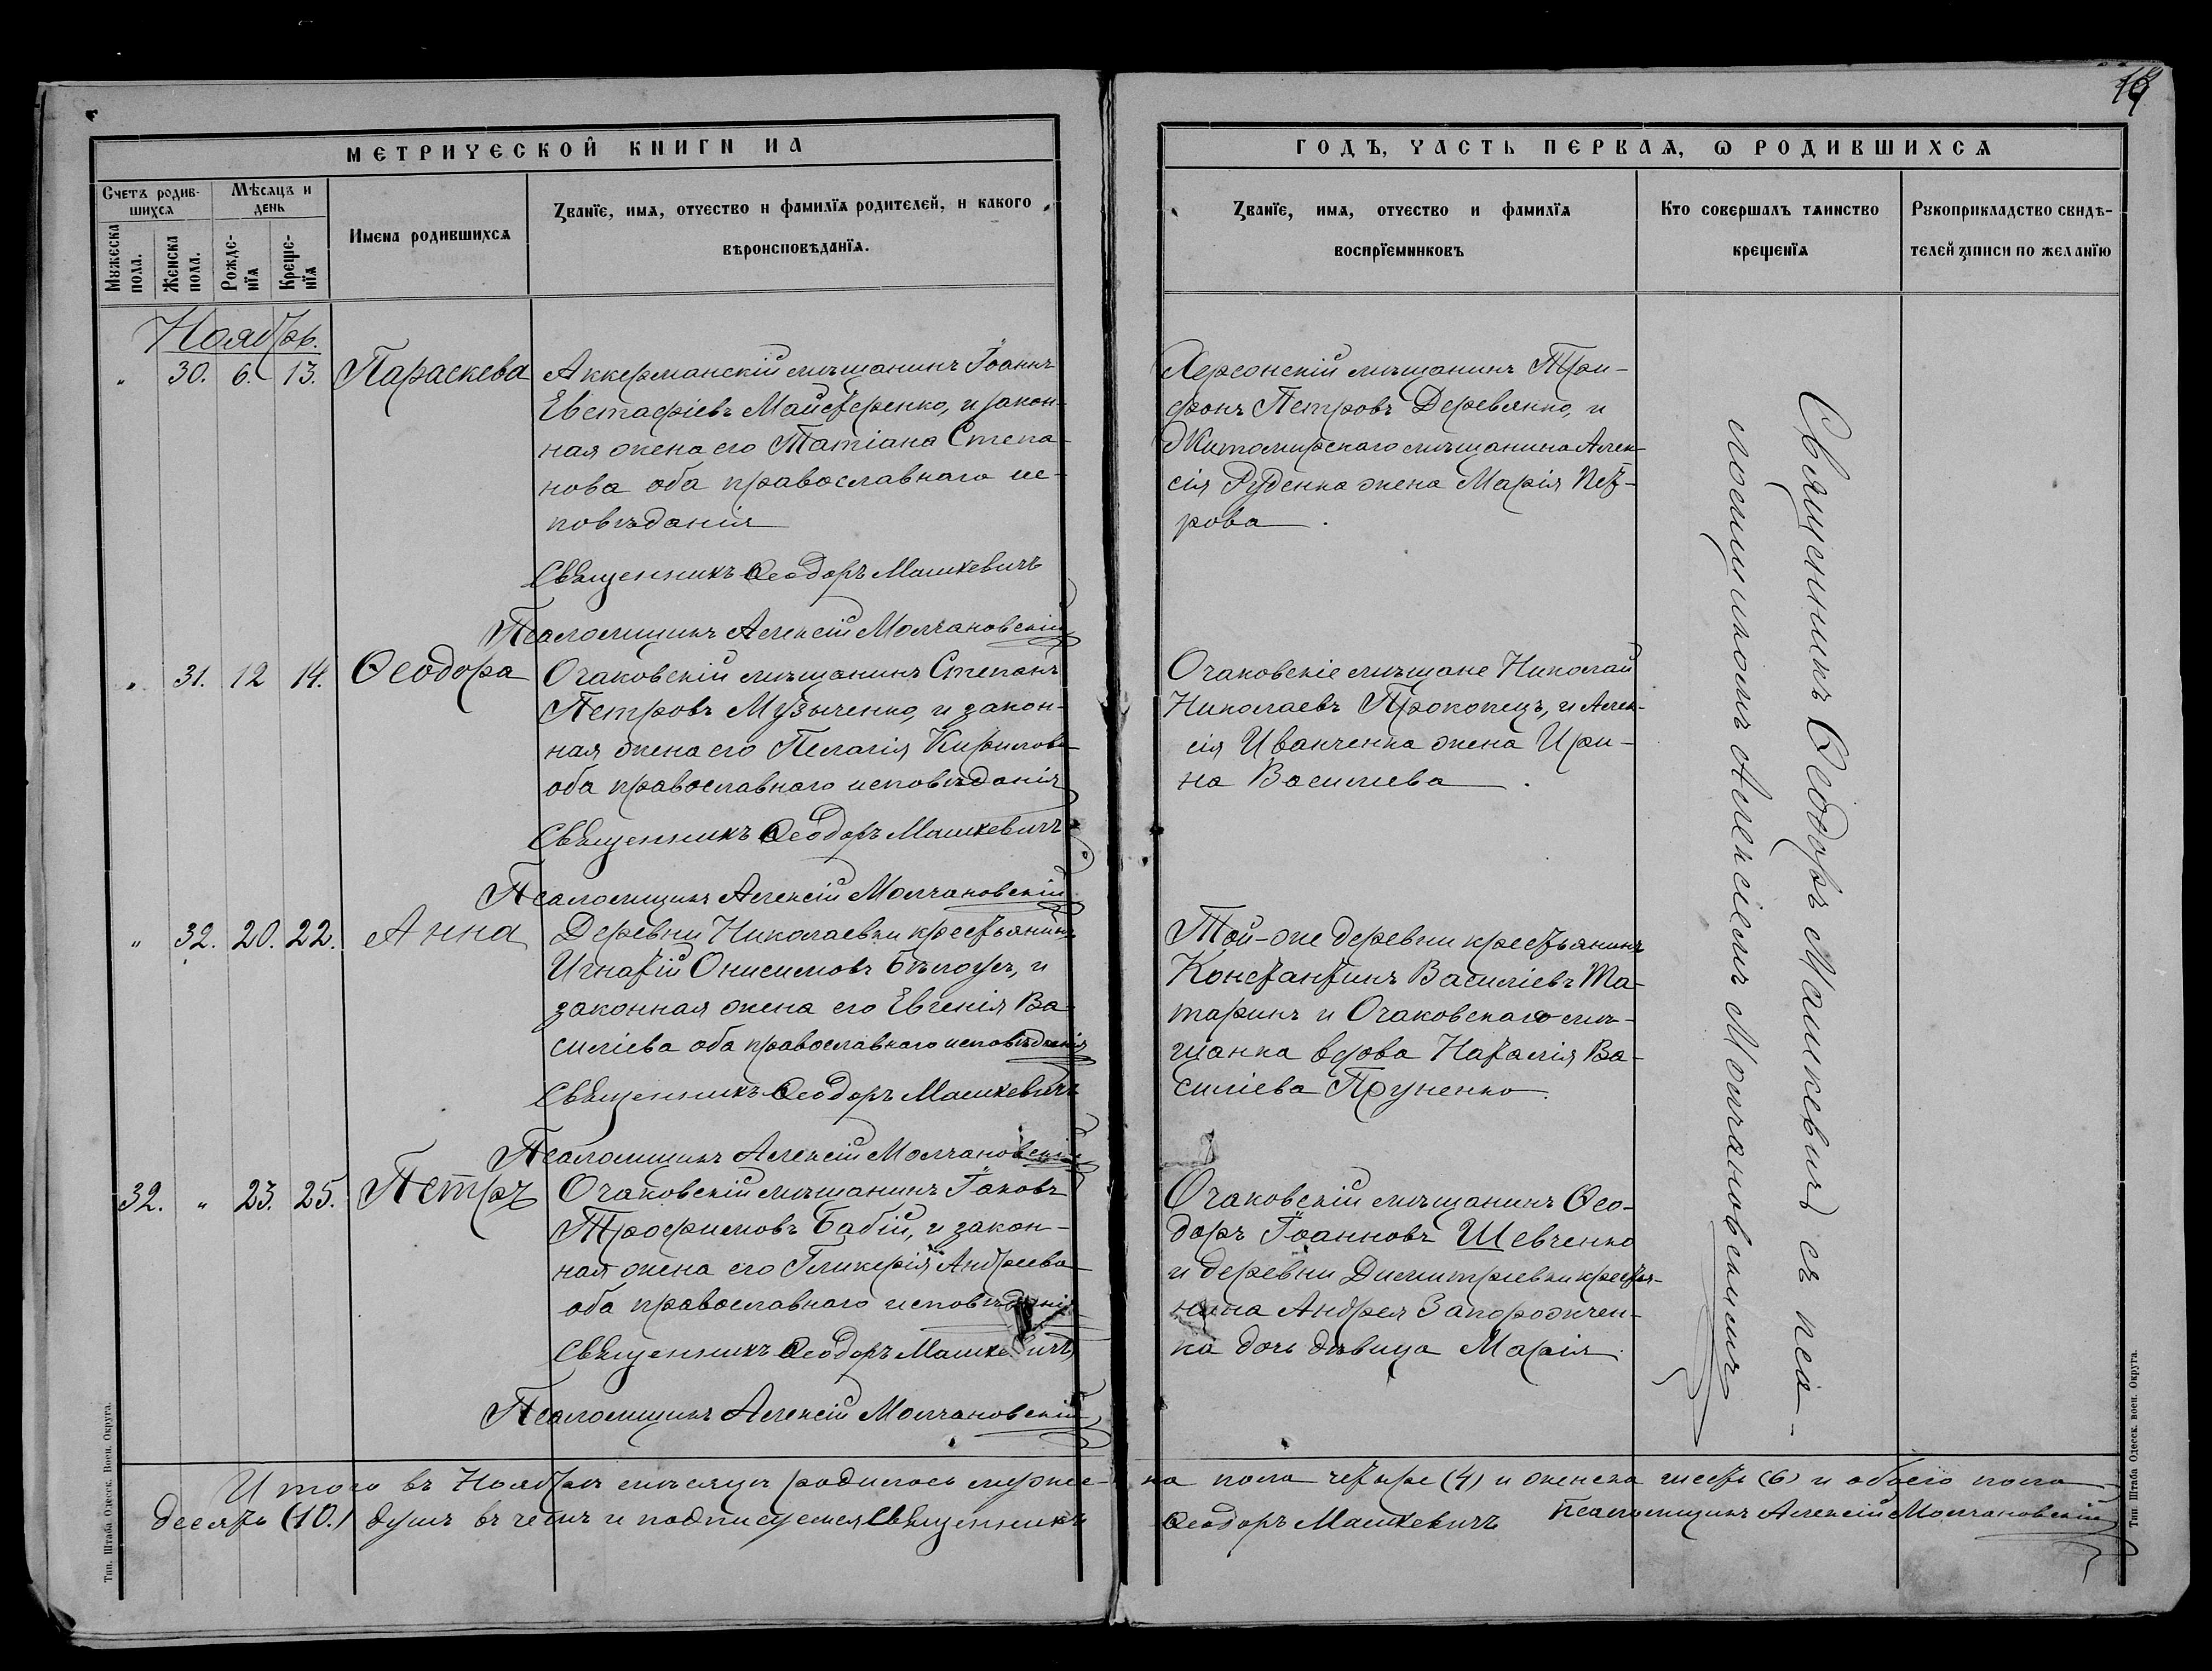 19
МЕТРИЧЕСКОЙ КНИГИ НА
ГОДЪ, ЧАСТЬ ПЕРВАѦ, Ѡ РОДИВШИХСѦ
Счетъ родив-
шихсѧ
Мѣсѧцъ и
день
Мꙋжеска
пола.
Женска
пола.
Рожде-
нїѧ
Креще-
нїѧ
Имена родившихсѧ
Званїе, имѧ, отчество и фамилїѧ родителей, и какого
вѣроисповѣданїѧ.
Званїе, имѧ, отчество и фамилїѧ
воспрїемниковъ
Кто совершалъ таинство
крещенїѧ
Рꙋкоприкладство свидѣ-
телей записи по желанїю
Ноябрь.
" 30. 6. 13. Параскева
Аккерманскій мѣщанинъ Іоаннъ
Евстафіевъ Майстренко, и закон-
ная жена его Татіана Степа-
нова оба православнаго ис-
повѣданія
Священникъ Ѳеодоръ Машкевичъ
Псаломщикъ Алексій Молчановскій
Херсонскій мѣщанинъ Три-
фонъ Петровъ Деревянко, и
Житомирскаго мѣщанина Алек-
сія Руденка жена Марія Пет-
рова.
" 31. 12 14. Ѳеодора
Очаковскій мѣщанинъ Степанъ
Петровъ Музыченко, и закон-
ная жена его Пелагія Кирилова
оба православнаго исповѣданія
Священникъ Ѳеодоръ Машкевичъ
Псаломщикъ Алексій Молчановскій
Очаковскіе мѣщане Николай
Николаевъ Прокопецъ, и Алек-
сія Иванченка жена Ири-
на Василіева.
" 32. 20. 22. Анна
Деревни Николаевки крестьянинъ
Игнатій Онисимовъ Бѣлоусъ, и
законная жена его Евгенія Ва-
силіева оба православнаго исповѣданія
Священникъ Ѳеодоръ Машкевичъ
Псаломщикъ Алексій Молчановскій
Той-же деревни крестьянинъ
Константинъ Василіевъ Та-
таринъ и Очаковскаго мѣ-
щанка вдова Наталія Ва-
силіева
32. " 23. 25. Петръ
Очаковскій мѣщанинъ Іаковъ
Трофимовъ Бабій, и закон-
ная жена его Гликерія Андреева
оба православнаго исповѣданія
Священникъ Ѳеодоръ Машкевичъ
Псаломщикъ Алексій Молчановскій
Очаковскій мѣщанинъ Ѳео-
доръ Іоанновъ Шевченко
и деревни Димитріевки крестья-
нина Андрея Запорожчен-
ка дочь дѣвица Марія.
Священникъ Ѳеодоръ Машкевичъ съ пса-
ломщикомъ Алексіемъ Молчановскимъ
Итого въ Ноябрѣ мѣсяцѣ родилось мужес-ка пола четыре (4) и женска шесть (6) и обоего пола
десять (10.) душъ въ чемъ и подписуемся Священникъ Ѳеодоръ Машкевичъ Псаломщикъ Алексій Молчановскій
Тип. Штаба Одесск. Воен. Округа.
Тип. Штаба Одесск. воен. Округа.